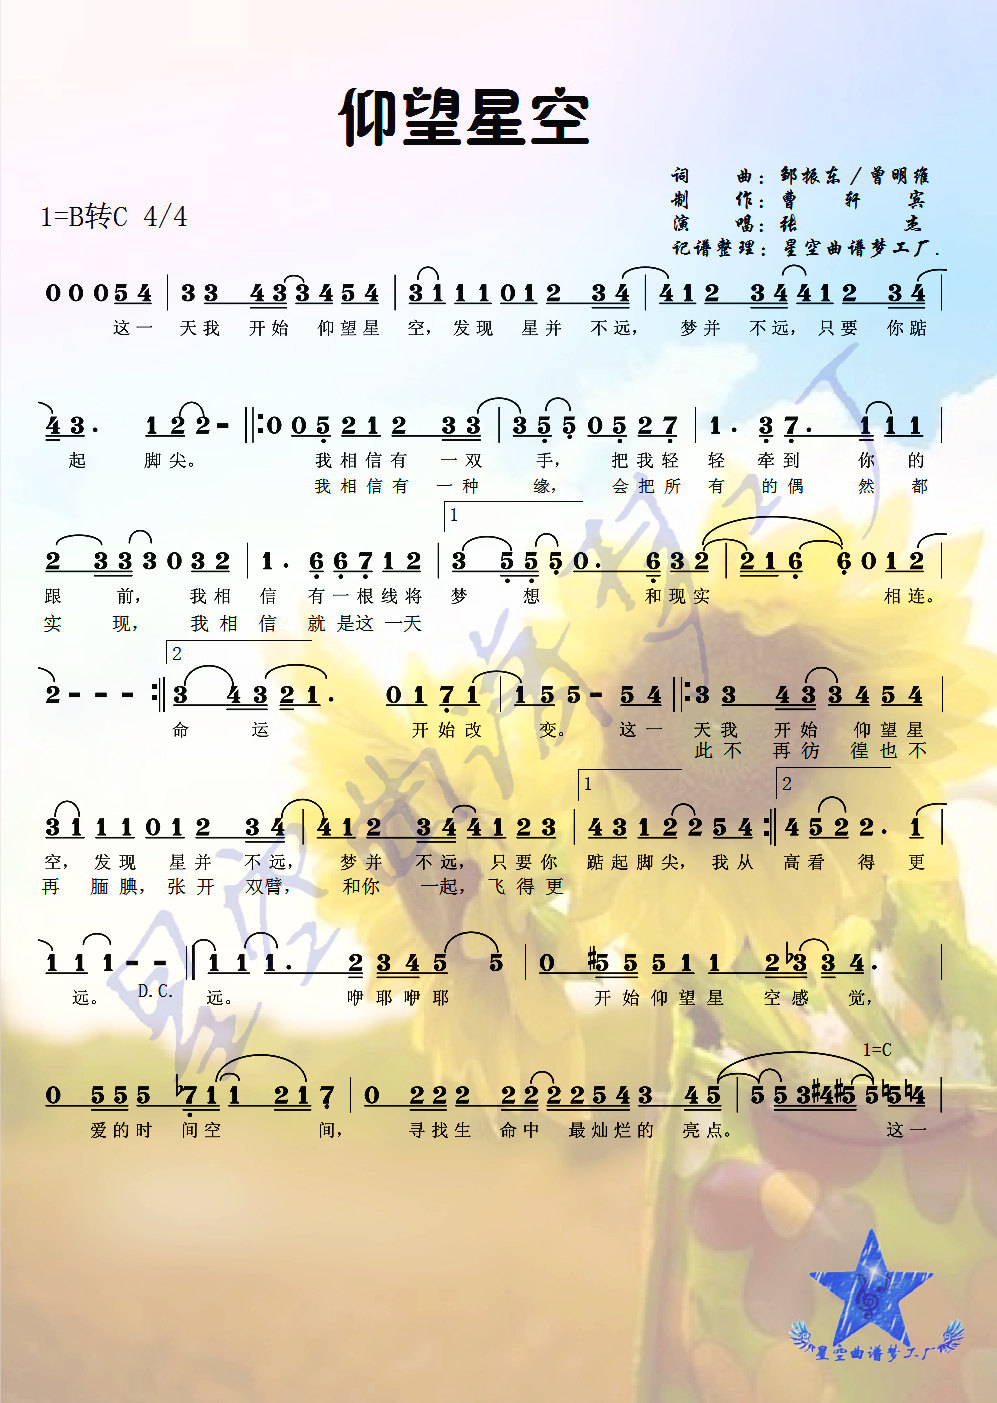 仰望星空
词 曲：邹振东/曾明维
1=B转C 4/4
制 作：曹轩宾
演 唱：张杰
记谱整理：星空曲谱梦工厂.
0 0 0 5 4 | 3 3 4 3 3 4 5 4 | 3 1 1 1 0 1 2 3 4 | 4 1 2 3 4 4 1 2 3 4 |
这一 天我 开始 仰望星 空，发现 星并 不远， 梦并 不远，只要 你踮
4 3. 1 2 2 - ‖: 0 0 5 2 1 2 3 3 | 3 5 5 0 5 2 7 | 1. 3 7. 1 1 1 |
起 脚尖。 我相信有 一双 手， 把我轻 轻 牵到 你的
我相信有 一种 缘， 会把所 有 的偶 然都
1
2 3 3 3 0 3 2 | 1. 6 6 7 1 2 | 3 5 5 5 0. 6 3 2 | 2 1 6 6 0 1 2 |
跟 前， 我相 信 有一根线将 梦 想 和现实 相连。
实 现， 我相 信 就是这一天
2
2 - - - :‖ 3 4 3 2 1. 0 1 7 1 | 1 5 5 - 5 4 ‖: 3 3 4 3 3 4 5 4 |
命 运 开始改 变。 这一 天我 开始 仰望星
此不 再彷 徨也不
1 2
3 1 1 1 0 1 2 3 4 | 4 1 2 3 4 4 1 2 3 | 4 3 1 2 2 5 4 :‖ 4 5 2 2. 1 |
空，发现 星并 不远， 梦并 不远，只要你 踮起脚尖，我从 高看 得 更
再 腼腆，张开 双臂， 和你 一起，飞得更
1 1 1 - - ‖ 1 1 1. 2 3 4 5 5 | 0 #5 5 5 1 1 2 b3 3 4. |
远。 D.C. 远。 咿耶咿耶 开始仰望星 空感 觉，
1=C
0 5 5 5 b7 1 1 2 1 7 | 0 2 2 2 2 2 2 2 5 4 3 4 5 | 5 5 3 #4 #5 5 ♮5 ♮4
爱的时 间空 间， 寻找生 命中 最灿烂的 亮点。 这一
星空曲谱梦工厂